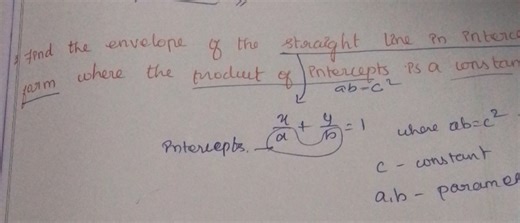 find the envelope of the straight line in interc
form where the product of intercepts is a constan
ab=c²
x/a + y/b = 1 where ab=c²
Intercepts.
c - constant
a,b - parame